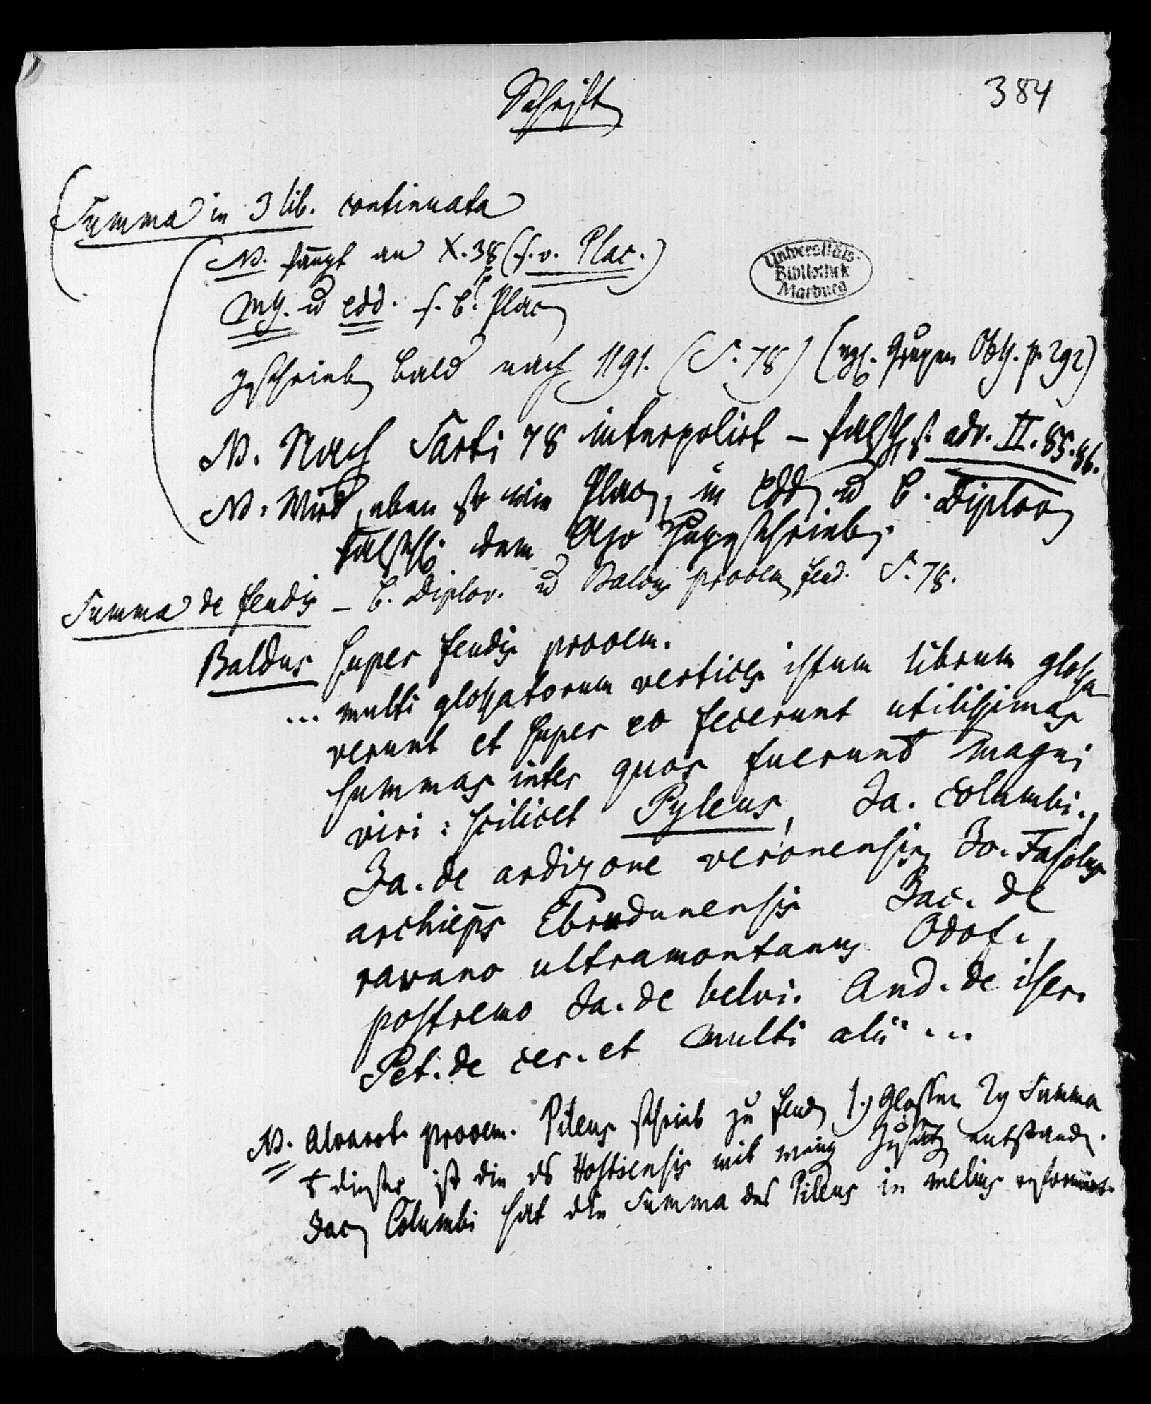 384
Schrift
Summa in 3 lib. continuata
N. fängt an X. 38 (s. v. Plac.)
Mss. u edd. s. b. Plac
Universitäts-
Bibliothek
Marburg
geschrieben bald nach 1191. (S. 78) (vgl. p. 292)
N. Nach Sarti 78 interpolirt – falsch, s. adv. II. 85. 86.
N. Wird, eben so wie Plac, in Edd u b. Diplov
fälschl. dem Azo zugeschrieben.
Summa de feudis – b. Diplov. u Baldus prooem feud. S. 78.
Baldus super feudis prooem.
... multi glossatorum vertices istum librum glossa
verunt et super eo fecerunt utilissimas
summas inter quos fuerunt magni
viri : scilicet Pyleus, Ja. columbi.,
Ja. de ardizone veronensis Jo. Fasolus
archieps Ebredunensis Jac. de
ravano ultramontanus Odof.,
postremo Ja. de belvi. And. de iser.
Pet. de cer. et multi alii ...
N. Alvarot. prooem. Pileus schrieb zu feud 1.) Glossen 2) Summa
dieser ist die des Hostiensis mit wenig Zusätzen entstanden.
Jac Columbi hat die Summa des Pileus in melius reformirt.